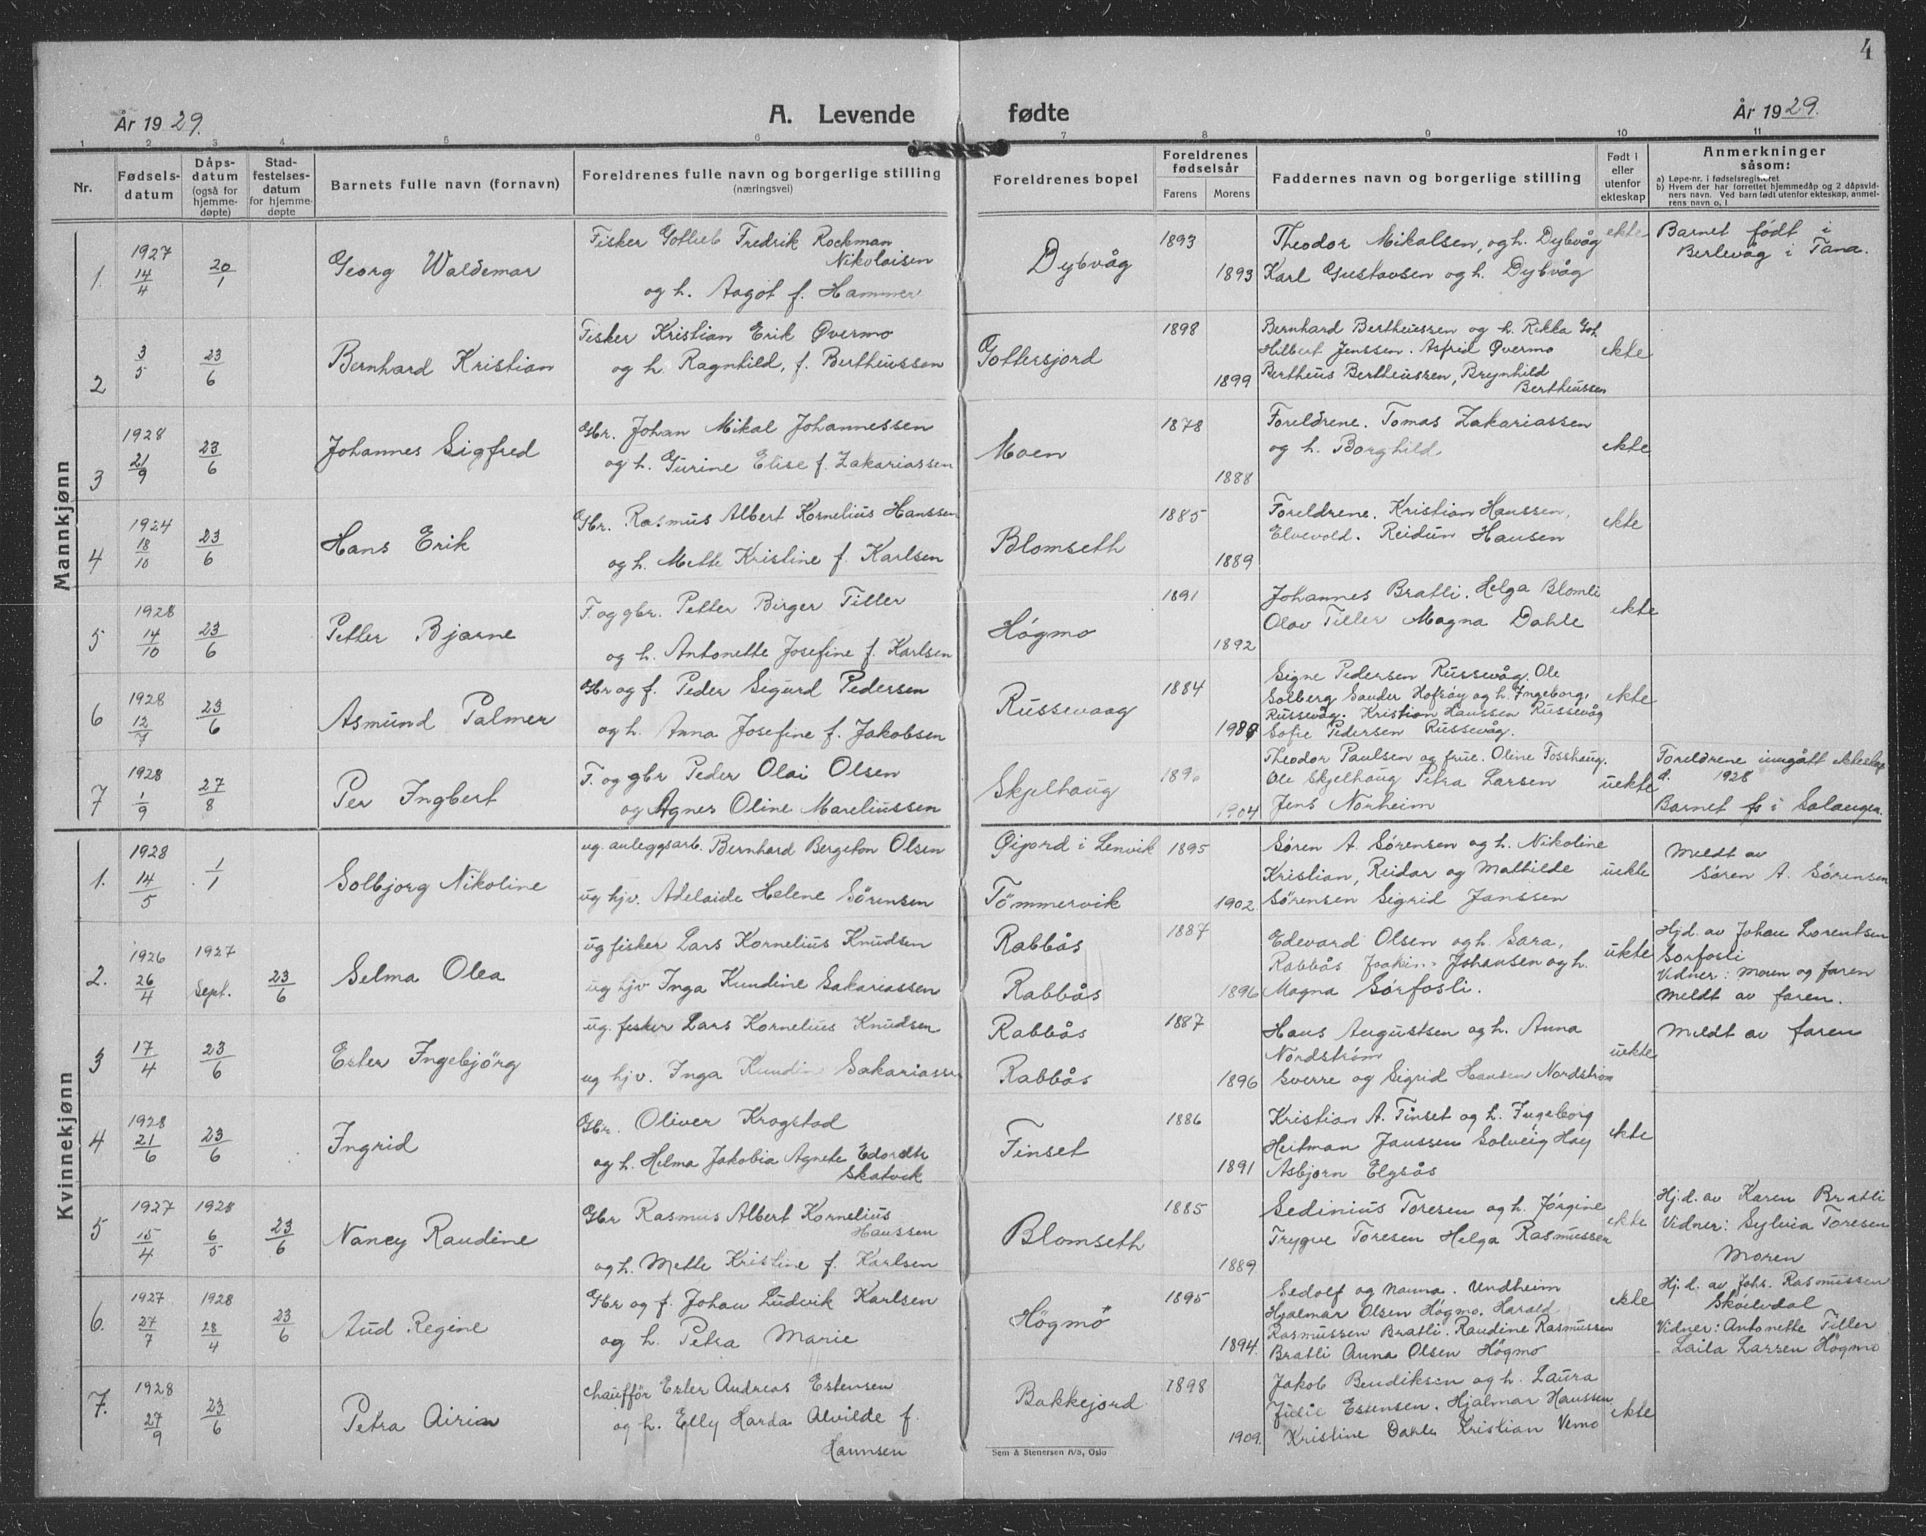 4
År 1929.
A. Levende fødte
År 1929.
1 2 3 4 5 6 7 8 9 10 11
Nr.
Fødsels-
datum
Dåps-
datum
(også for
hjemme-
døpte)
Stad-
festelses-
datum
for hjemme-
døpte
Barnets fulle navn (fornavn)
Foreldrenes fulle navn og borgerlige stilling
(næringsvei)
Foreldrenes bopel
Foreldrenes
fødselsår
Farens Morens
Faddernes navn og borgerlige stilling
Født i
eller
utenfor
ekteskap
Anmerkninger
såsom:
a) Løpe-nr. i fødselsregisteret
b) Hvem der har forrettet hjemmedåp og 2 dåpsvid-
ners navn. Ved barn født utenfor ekteskap, anmel-
rens navn o. l
Mannkjønn
1. 1927 14/4 20/1
Georg Waldemar
Fisker Gotlieb Fredrik Rockman
Nikolaisen
og h. Aagot f. Hammer
Dybvåg
1893
1893
Theodor Mikalsen, og h. Dybvåg
Karl Gustavsen og h. Dybvåg
ekte
Barnet født i
Berlevåg i Tana.
2 3/5 23/6
Bernhard Kristian
Fisker Kristian Erik Øvermo
og h. Ragnhild, f. Bertheussen
Gottersjord
1898
1899
Bernhard Bertheussen og h. Rikka Goh
Hilbert Jenssen. Asfrid Øvermo
Bertheus Bertheussen, Brynhild
Bertheussen
ekte
3 1928 21/9 23/6
Johannes Sigfred
Gbr. Johan Mikal Johannessen
og h. Gurine Elise f. Zakariassen
Moen
1878
1888
Foreldrene. Tomas Zakariassen
og h. Borghild.
ekte
4 1924 18/10 23/6
Hans Erik
Gbr. Rasmus Albert Kornelius Hanssen
og h. Mette Kristine f. Karlsen
Blomseth
1885
1889
Foreldrene. Kristian Hanssen,
Elvevold. Reidun Hansen
ekte
5 1928 14/10 23/6
Petter Bjarne
F. og gbr. Petter Birger Tiller
og h. Antonette Josefine f. Karlsen
Högmo
1891
1892
Johannes Bratli. Helga Blomli
Olav Tiller Magna Dahle
ekte
6 1928 12/7 23/6
Asmund Palmer
Gbr og f. Peder Sigurd Pedersen
og h. Anna Josefine f. Jakobsen
Russevaag
1884
Signe Pedersen Russevåg. Ole
Solberg Sander Hofsøy og h. Ingeborg,
Russevåg. Kristian Hanssen Russevåg
Sofie Pedersen Russevåg.
ekte
7 1928 1/9 27/8
Per Ingbert
F. og gbr Peder Olai Olsen
og Agnes Oline Mareliussen
Skjelhaug
1904
Theodor Paulsen og frue. Oline Fosshaug.
Ole Skjelhaug Petra Larsen
Jens Norheim
uekte
Foreldrene inngått ekteskap
d. 1928
Barnet fs i Salangen.
Kvinnekjønn
1. 1928 14/5 1/1
Solbjorg Nikoline
ug. anleggsarb. Bernhard Bergeton Olsen
ug hjv. Adelaide Helene Sörensen
Gijord i Lenvik
Tömmervik
1895
1902
Søren A. Sørensen og h. Nikoline
Kristian, Reidar og Mathilde
Sørensen Sigrid Janssen
uekte
Meldt av
Søren A. Sørensen
2. 1926 26/4 1927 Sept. 23/6
Selma Olea
ug fisker Lars Kornelius Knudsen
ug hjv Inga Kundine Sakariassen
Rabbås
Rabbås
1887
1896
Edevard Olsen og h. Sara,
Rabbås Joakim Johansen og h.
Magna Sørfosli.
uekte
Hj.d. av Johan Lorentsen
Sørfosli
Vidner: moren og faren
Meldt av faren.
3 17/4 23/6
Ester Ingebjörg
ug. fisker Lars Kornelius Knudsen
ug hjv. Inga Kundine Sakariassen
Rabbås
Rabbås
1887
1896
Hans Augustsen og h. Anna
Nordstrøm
Sverre og Sigrid Hansen Nordstrøm
uekte
Meldt av faren
4 1928 21/6 23/6
Ingrid
Gbr. Oliver Krogstad
og h. Helma Jakobia Agnete Edordth
Skatvik
Finset
1886
1891
Kristian A. Finset og h. Ingeborg
Heitman Janssen Solveig Hay
Asbjørn Elgsås
ekte
5 1927 15/4 1928 6/5 23/6
Nancy Raudine
Gbr Rasmus Albert Kornelius
Hanssen
og h. Mette Kristine f. Karlsen
Blomseth
1885
1889
Sedinius Toresen og h. Jörgine
Trygve Toresen Helga Rasmussen
ekte
Hj.d. av Karen Bratli
Vidner: Sylvia Toresen
Moren
6. 1927 27/7 1928 28/4 23/6
Aud Regine
Gbr og f. Johan Ludvik Karlsen
og h. Petra Marie
Högmo
1895
1894.
Sedolf og Nanna. Undheim
Hjalmar Olsen Högmo. Harald
Rasmussen Bratli. Raudine Rasmussen
Bratli Anna Olsen Högmo
ekte
Hj.d. av Johs. Rasmussen
Sköelvdal
Vidner: Antonette Tiller
- Laila Larsen Högmo
7. 1928 27/9 23/6
Petra Airin
Chauffør Ester Andreas Estensen
og h. Elly Harda Alvilde f.
Hannsen
Bakkejord
1898
1909.
Jakob Bendiksen og h. Laura
Julie Estensen. Hjalmar Hanssen
Kristine Dahle Kristian Vemo
ekte
Sem & Stenersen A/S, Oslo